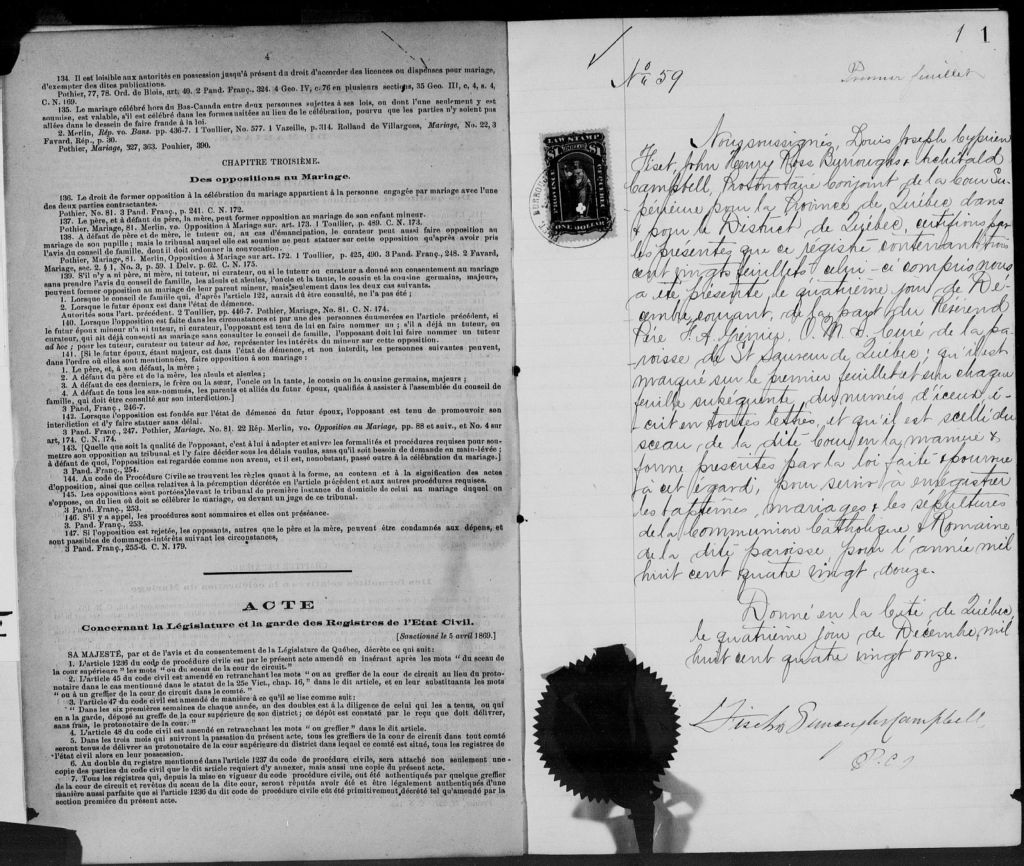 4
134. Il est loisible aux autorités en possession jusqu'à présent du droit d'accorder des licences ou dispenses pour mariage,
d'exempter des dites publications.
Pothier, 77, 78. Ord. de Blois, art. 40. 2 Pand. Franç., 324. 4 Geo. IV, c. 76 en plusieurs sections, 35 Geo. III, c, 4, s. 4,
C. N. 169.
135. Le mariage célébré hors du Bas-Canada entre deux personnes sujettes à ses lois, ou dont l'une seulement y est
soumise, est valable, s'il est célébré dans les formes usitées au lieu de la célébration, pourvu que les parties n'y soient pas
allées dans le dessein de faire fraude à la loi.
2. Merlin, Rép. vo. Bans. pp. 436-7. 1 Toullier, No. 577. 1 Vazeille, p. 314. Rolland de Villargues, Mariage, No. 22, 3
Favard, Rép., p. 30.
Pothier, Mariage, 327, 363. Pouhier, 390.
CHAPITRE TROISIÈME.
Des oppositions au Mariage.
136. Le droit de former opposition à la célébration du mariage appartient à la personne engagée par mariage avec l'une
des deux parties contractantes.
Pothier, No. 81. 3 Pand. Franç., p. 241. C. N. 172.
137. Le père, et à défaut du père, la mère, peut former opposition au mariage de son enfant mineur.
Pothier, Mariage, 81. Merlin, vo. Opposition à Mariage sur art. 173. 1 Toullier, p. 489. C. N. 174.
138. A défaut de père et de mère, le tuteur ou, au cas d'émancipation, le curateur peut aussi faire opposition au
mariage de son pupille ; mais le tribunal auquel elle est soumise ne peut statuer sur cette opposition qu'après avoir pris
l'avis du conseil de famille, dont il doit ordonner la convocation.
Pothier, Mariage, 81. Merlin, Opposition à Mariage sur art. 172. 1 Toullier, p. 425, 490. 3 Pand. Franç., 248. 2 Favard,
Mariage, sec. 2. § 1, No. 3, p. 59. 1 Delv. p. 62. C. N. 175.
139. S'il n'y a ni père, ni mère, ni tuteur, ni curateur, ou si le tuteur ou curateur a donné son consentement au mariage
sans prendre l'avis du conseil de famille, les aïeuls et aïeules, l'oncle et la tante, le cousin et la cousine germains, majeurs,
peuvent former opposition au mariage de leur parent mineur, mais seulement dans les deux cas suivants.
1. Lorsque le conseil de famille qui, d'après l'article 122, aurait dû être consulté, ne l'a pas été ;
2. Lorsque le futur époux est dans l'état de démence.
Autorités sous l'art. précédent. 2 Toullier, pp. 446-7. Pothier, Mariage, No. 81. C. N. 174.
140. Lorsque l'opposition est faite dans les circonstances et par une des personnes énumérées en l'article précédent, si
le futur époux mineur n'a ni tuteur, ni curateur, l'opposant est tenu de lui en faire nommer un ; s'il a déjà un tuteur, ou
curateur, qui ait déjà consenti au mariage sans consulter le conseil de famille, l'opposant doit lui faire nommer un tuteur
ad hoc ; pour les tuteur, curateur ou tuteur ad hoc, représenter les intérêts du mineur sur cette opposition.
141. [Si le futur époux, étant majeur, est dans l'état de démence, et non interdit, les personnes suivantes peuvent,
dans l'ordre où elles sont mentionnées, faire opposition à son mariage :
1. Le père, et, à son défaut, la mère ;
2. A défaut du père et de la mère, les aïeuls et aïeules ;
3. A défaut de ces derniers, le frère ou la sœur, l'oncle ou la tante, le cousin ou la cousine germains, majeurs ;
4. A défaut de tous les sus-nommés, les parents et alliés du futur époux, qualifiés à assister à l'assemblée du conseil de
famille, qui doit être consulté sur son interdiction.]
3 Pand. Franç., 246-7.
142. Lorsque l'opposition est fondée sur l'état de démence du futur époux, l'opposant est tenu de promouvoir son
interdiction et d'y faire statuer sans délai.
3 Pand. Franç., 247. Pothier, Mariage, No. 81. 22 Rép. Merlin, vo. Opposition au Mariage, pp. 88 et suiv., et No. 4 sur
art, 174. C. N. 174.
143. [Quelle que soit la qualité de l'opposant, c'est à lui à adopter et suivre les formalités et procédures requises pour sou-
mettre son opposition au tribunal et l'y faire décider sous les délais voulus, sans qu'il soit besoin de demande en main-levée ;
à défaut de quoi, l'opposition est regardée comme non aveue, et il est, nonobstant, passé outre à la célébration du mariage ;]
3 Pand. Franç., 254.
144. Au code de Procédure Civile se trouvent les règles quant à la forme, au contenu et à la signification des actes
d'opposition, ainsi que celles relatives à la péremption décrétée en l'article précédent et aux autres procédures requises.
145. Les oppositions sont portées devant le tribunal de première instance du domicile de celui au mariage duquel on
s'oppose, ou du lieu où doit se célébrer le mariage, ou devant un juge de ce tribunal.
3 Pand. Franç., 253.
146. S'il y a appel, les procédures sont sommaires et elles ont préséance.
3. Pand. Franç., 253.
147. Si l'opposition est rejetée, les opposants, autres que le père et la mère, peuvent être condamnés aux dépens, et
sont passibles de dommages-intérêts suivant les circonstances,
3 Pand. Franç., 255-6. C. N. 179.
ACTE
Concernant la Législature et la garde des Registres de l'Etat Civil.
[Sanctionné le 5 avril 1869.]
SA MAJESTÉ, par et de l'avis et du consentement de la Législature de Québec, décrète ce qui suit :
1. L'article 1236 du code de procédure civile est par le présent acte amendé en insérant après les mots " du sceau de
la cour supérieure " les mots " ou du sceau de la cour de circuit."
2. L'article 45 du code civil est amendé en retranchant les mots " ou au greffier de la cour de circuit au lieu du proto-
notaire dans le cas mentionné dans le statut de la 25e Vict., chap. 16," dans le dit article, et en leur substituant les mots
" ou à un greffier de la cour de circuit dans le comté."
3. l'article 47 du code civil est amendé de manière à ce qu'il se lise comme suit :
" Dans les six premières semaines de chaque année, un des doubles est à la diligence de celui qui les a tenus, ou qui
en a la garde, déposé au greffe de la cour supérieure de son district ; ce dépôt est constaté par le reçu que doit délivrer,
sans frais, le protonotaire de la cour."
4. L'article 48 du code civil est amendé en retranchant les mots " ou greffier " dans le dit article.
5. Dans les trois mois qui suivront la passation du présent acte, tous les greffiers de la cour de circuit dans tout comté
seront tenus de délivrer au protonotaire de la cour supérieure du district dans lequel ce comté est situé, tous les registres de
l'état civil alors en leur possession.
6. Au double du registre mentionné dans l'article 1237 du code de procédure civile, sera attaché non seulement une
copie des parties du code civil que le dit article requiert d'y annexer, mais aussi une copie du présent acte.
7. Tous les registres qui, depuis la mise en vigueur du code procédure civile, ont été authentiqués par quelque greffier
de la cour de circuit et revêtus du sceau de la dite cour, seront réputés avoir été et être légalement authentiqués d'une
manière aussi parfaite que si l'article 1236 du dit code de procédure civile eût été primitivement décrété tel qu'amendé par la
section première du présent acte.
1 1
No 59
Premier feuillet
LAW STAMP
$1
ONE DOLLAR
Nous soussignés, Louis Joseph Cyprien
Fiset, John Henry Ross Burroughs & Archibald
Campbell, Protonotaire Conjoint de la Cour Su-
périeure pour la Province de Québec dans
& pour le District de Québec, certifions par
les présentes que ce registre contenant trois
cent vingt feuillets celui-ci compris nous
a été présenté, le quatrième jour de Dé-
cembre courant, de la part du Révérend
Père F. A. Grenier, O. M. I. Curé de la pa-
roisse de St Sauveur de Québec ; qu'il est
marqué sur le premier feuillet et sur chaque
feuille subséquente, du numéro d'iceux é-
crit en toutes lettres, et qu'il est scellé du
sceau de la dite Cour en la manière &
forme prescrites par la loi faite & pourvue
à cet égard, pour servir à enregistrer
les baptêmes, mariages & les sépultures
de la Communion Catholique & Romaine
de la dite paroisse, pour l'année mil
huit cent quatre vingt douze.
Donné en la Cité de Québec,
le quatrième jour de Décembre, mil
huit cent quatre vingt onze.
Fiset Burroughs Campbell
P.C.S